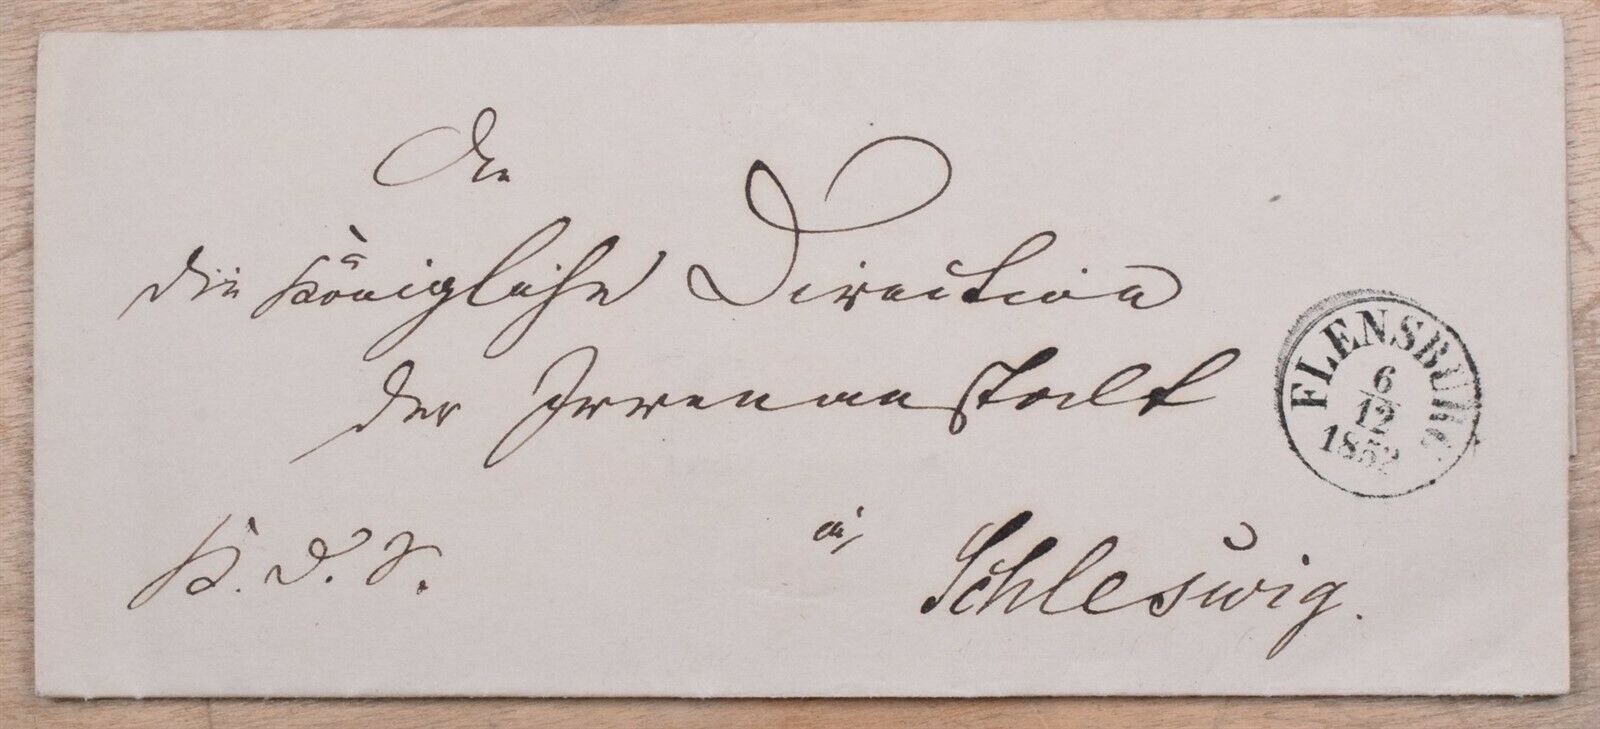 An
die Königliche Direction
der Irrenanstalt
in
Schleswig.
K. D. S.
FLENSBURG
6
12
1852